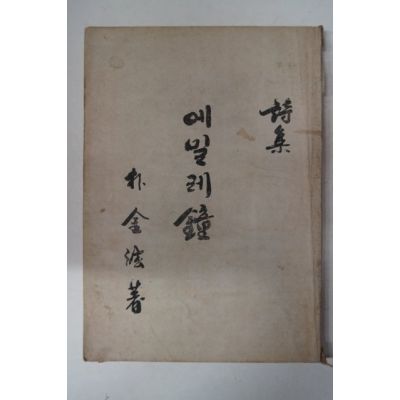 詩集
에밀레鐘
朴金 著